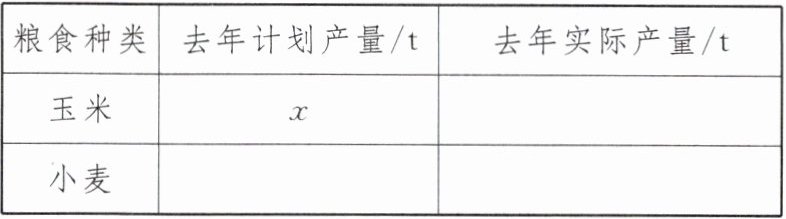 粮食种类 去年计划产量/t 去年实际产量/t
玉米 x
小麦